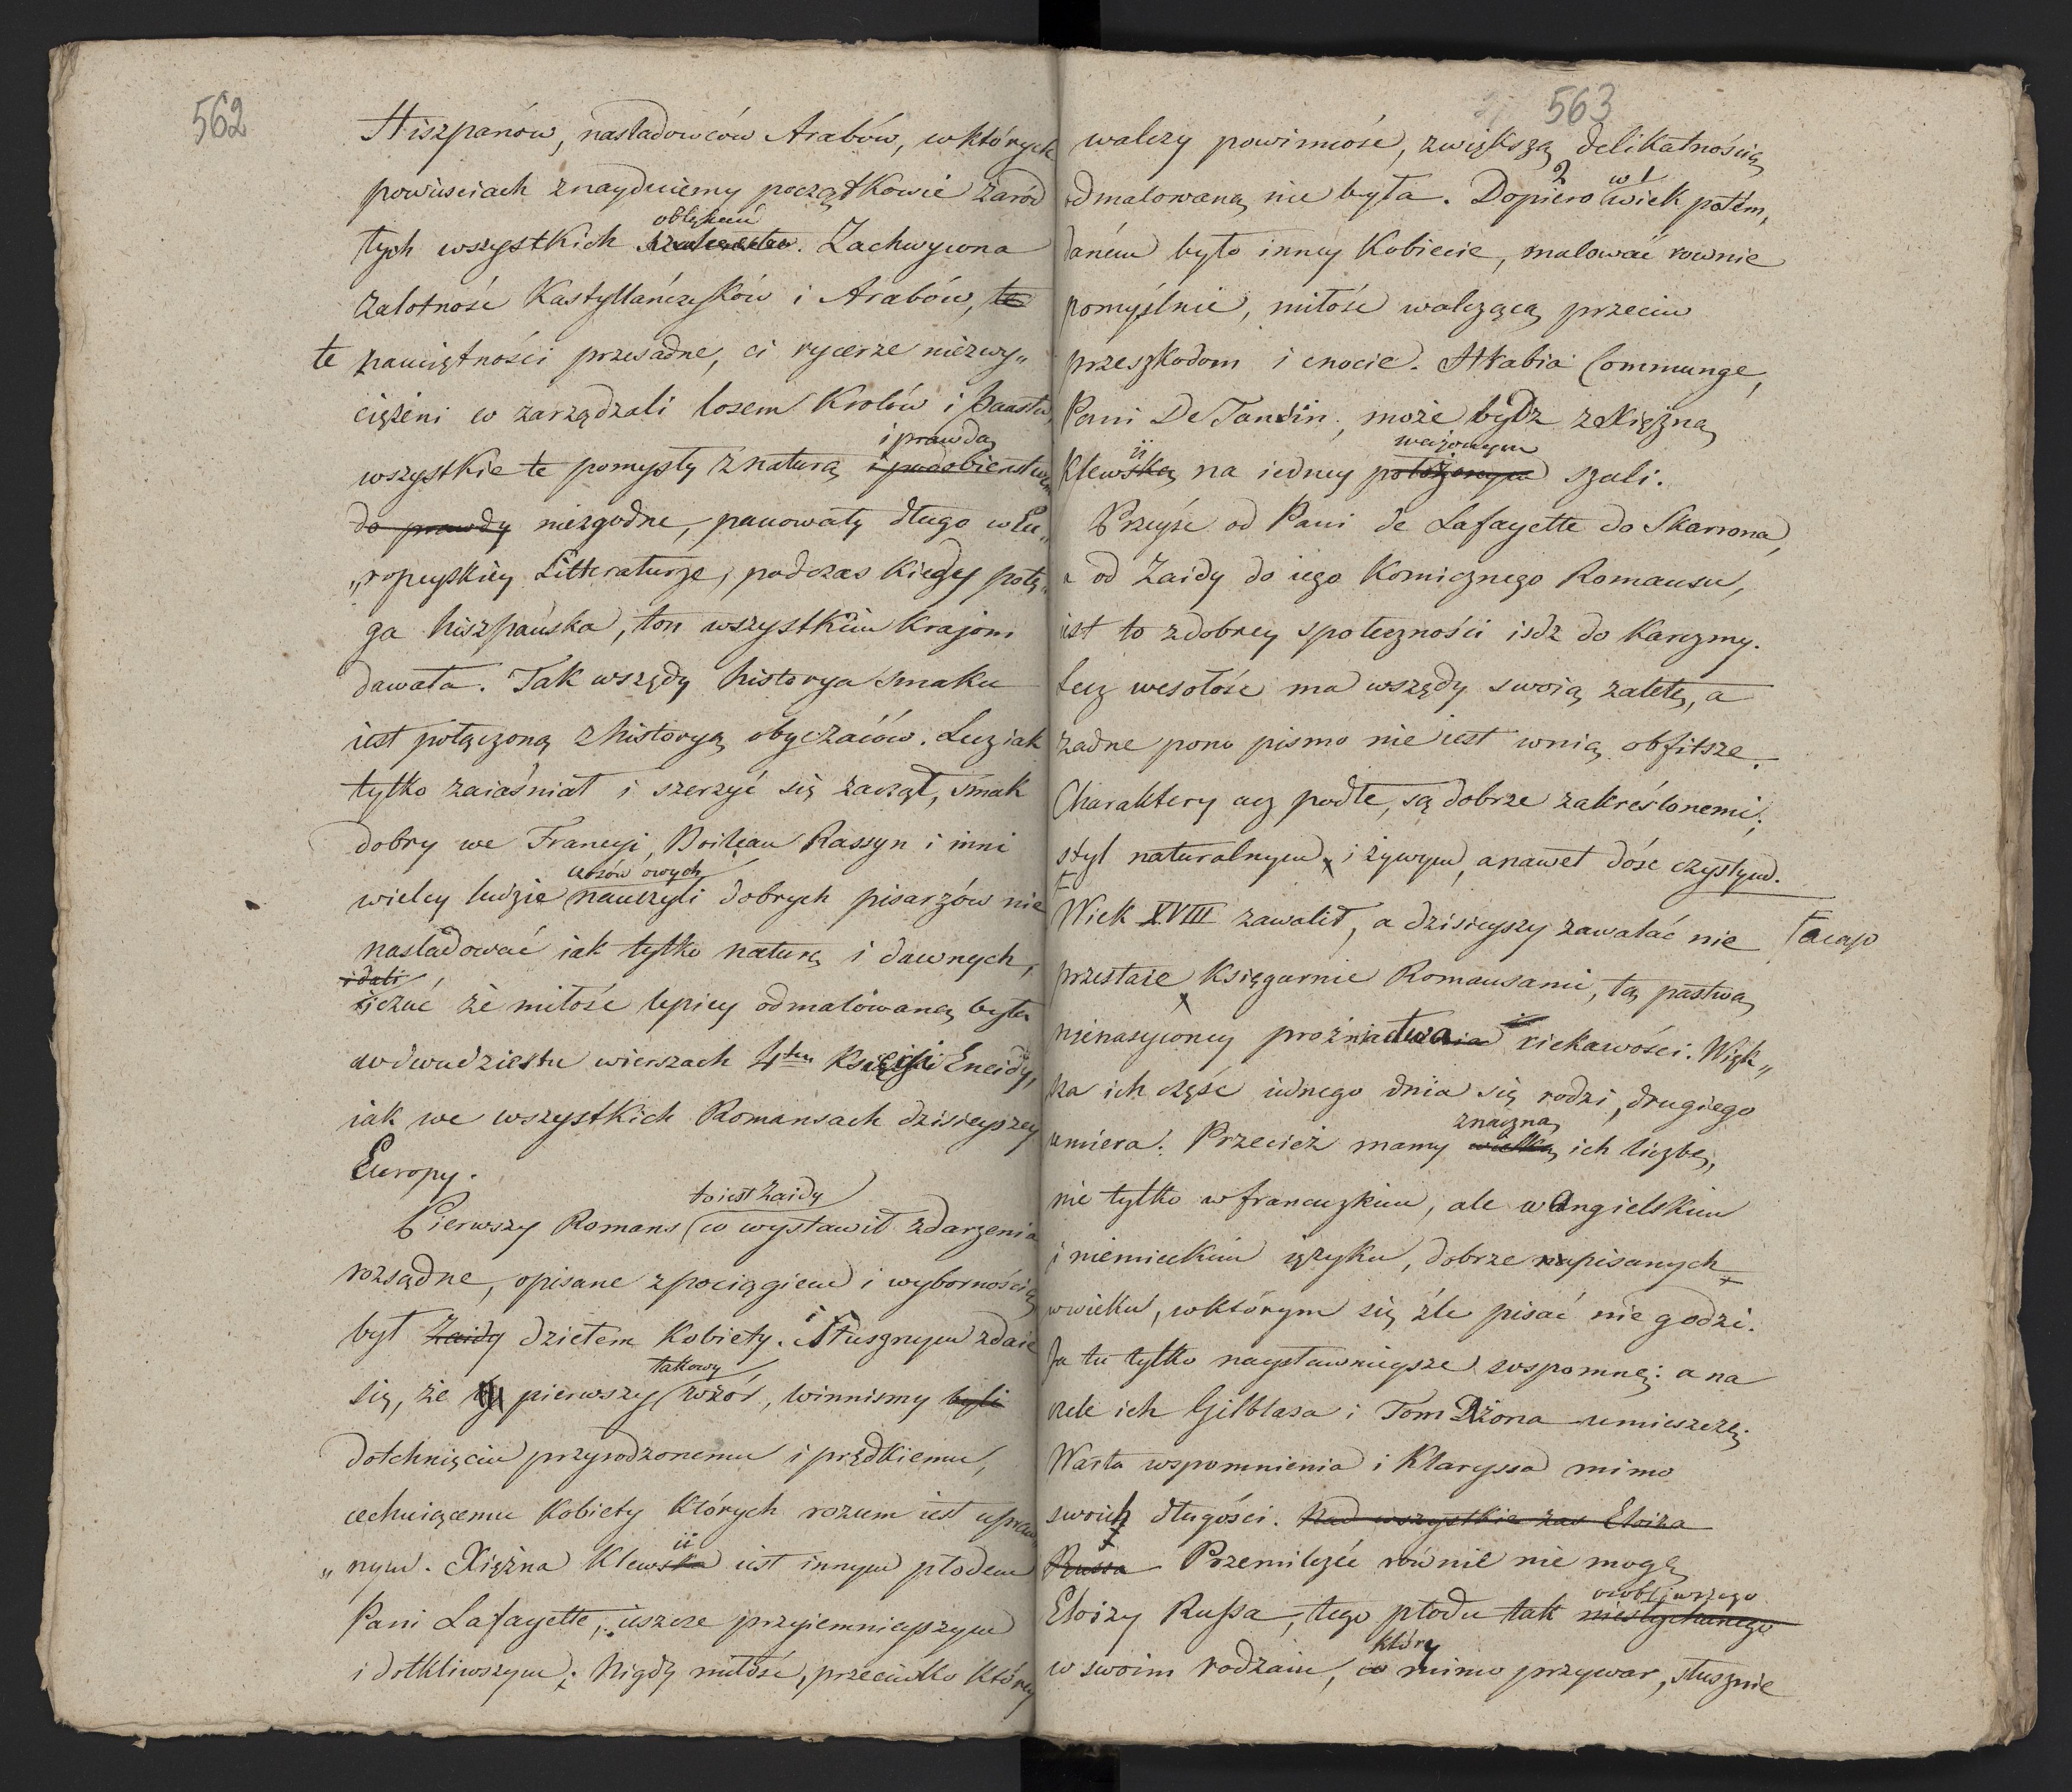 562
Hiszpanów, nasladowców Arabów, wktórych
powiesciach znayduiemy początkowie zaród
obłąkań
tych wszystkich. Zachwycona
zalotność Kastyllańczyków i Arabów, te
te namiętności przesadne, ci rycerze niezwy„
ciężeni co zarządzali losem Krolów i Państw,
i prawdą
wszystkie te pomysły z naturą i podobieństwem
do prawdy niezgodne, panowały długo w Eu„
„ropeyskiey Litteraturze, podczas kiedy potę„
ga hiszpańska, ton wszystkim krajom
dawała. Tak wszędy historya smaku
iest połączoną z historyą obyczaiów. Lecz iak
tylko zaiaśniał i szerzyć się zaczął, smak
dobry we Francyi, Boileau Rassyn i inni
czasów owych
wielcy ludzie nauczyli dobrych pisarzów nie
nasladować iak tylko naturę i dawnych,
i dali
uczuć że miłość lepiey odmalowaną była
w dwudziestu wierszach 4tey Księgi Eneidy,
iak we wszystkich Romansach dzisieyszey
Europy.
to iest Zaidy
Pierwszy Romans co wystawił zdarzenia
rozsądne, opisane z pociągiem i wybornością
był Zaidy dziełem Kobiety. i Słusznym zdaie
takowy
się, że pierwszy wzór, winnismy byli
dotchnięciu przyrodzonemu i prędkiemu,
cechuiącemu kobiety których rozum iest upraw„
ii
„nym. Xiężna Klewska iest innym płodem
Pani Lafayette, ieszcze przyiemnieyszym
i dotkliwszym; Nigdy miłość, przeciwko którey
563
walczy powinność, z większą delikatnością
2 w 1
odmalowaną nie była. Dopiero wiek potém,
daném było inney Kobiecie, malować rownie
pomyślnie, miłość walczącą przeciw
przeszkodom i cnocie. Hrabia Communge,
Pani De Tansin, może bydz z Xiężną
ii ważonym
Klewską na iedney położonym szali.
Przeyść od Pani de Lafayette do Skarrona,
a od Zaidy do iego Komicznego Romansu,
iest to z dobrey społeczności iśdz do Karczmy.
Lecz wesołość ma wszędy swoią zaletę, a
żadne pono pismo nie iest w nią obfitsze.
Charaktery acz podłe, są dobrze zakreślonemi;
styl naturalnym i żywym, a nawet dość czystym.
Wiek XVIII zawalił, a dzisieyszy zawalać nie acapo
przestaie Księgarnie Romansami, tą pastwą
nienasyconey próżniactwa ciekawości. Więk„
sza ich część iednego dnia się rodzi, drugiego
znaczną
umiera. Przecież mamy wielką ich liczbę,
nie tylko w francuzkim, ale w Angielskim
i niemieckim ięzyku, dobrze napisanych
w wieku, w którym się źle pisać nie godzi.
Ja tu tylko naysławnieysze wspomnę: a na
czele ich Gilblasa i Tom Dżona umieszczę.
Warta wspomnienia i Klaryssa mimo
swoich długości. Nad wszystkie zas Eloiza
Russa Przemilczéć równie nie mogę
osobliwszego
Eloizy Russa, tego płodu tak niesłychanego
który
w swoim rodzaiu, co mimo przywar, słusznie